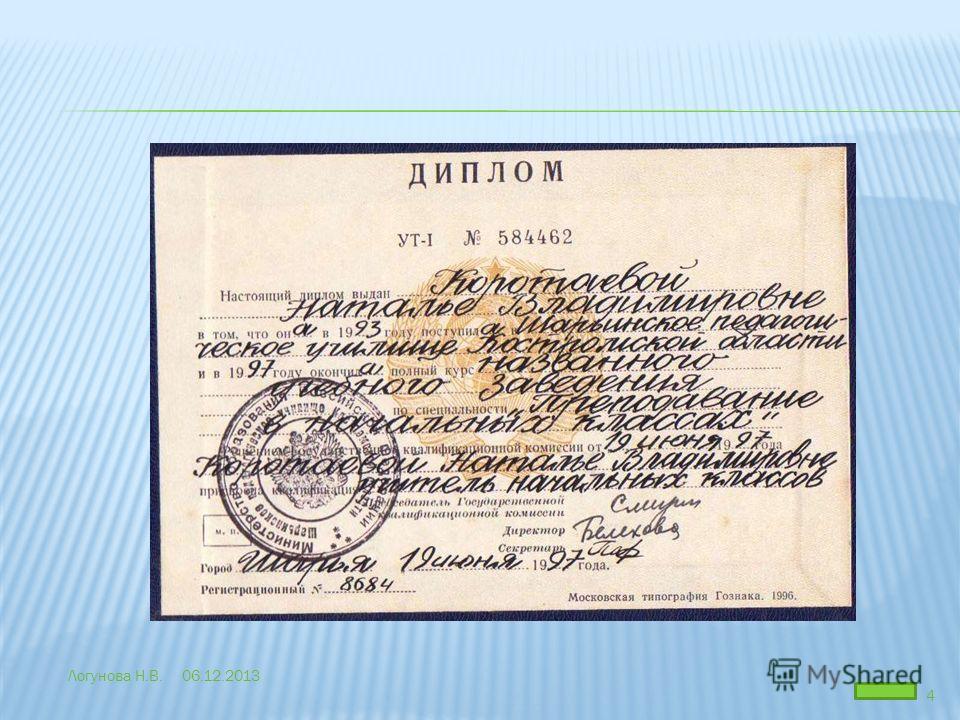 ДИПЛОМ
УТ-I № 584462
Настоящий диплом выдан Коротаевой
Наталье Владимировне
в том, что он а в 1993 году поступил а в Шарьинское педагоги-
ческое училище Костромской области
и в 1997 году окончил а полный курс названного
учебного заведения
по специальности „Преподавание
в начальных классах"
Решением Государственной квалификационной комиссии от 19 июня 1997 года
Коротаевой Наталье Владимировне
присвоена квалификация учитель начальных классов
Председатель Государственной
квалификационной комиссии
Директор Белехова
Секретарь
М. П.
Город Шарья 19 июня 1997 года.
Регистрационный № 8684
Московская типография Гознака. 1996.
Логунова Н.В. 06.12.2013
MyShared
4